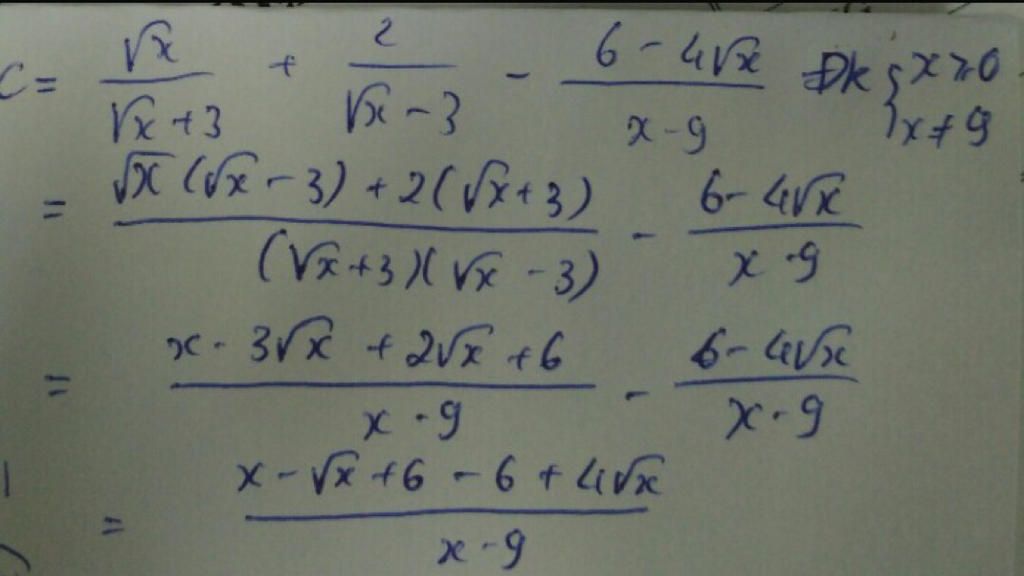 C = √x/(√x + 3) + 2/(√x - 3) - (6 - 4√x)/(x - 9) Đk { x ≥ 0
x ≠ 9
= (√x (√x - 3) + 2(√x + 3))/((√x + 3)(√x - 3)) - (6 - 4√x)/(x - 9)
= (x - 3√x + 2√x + 6)/(x - 9) - (6 - 4√x)/(x - 9)
= (x - √x + 6 - 6 + 4√x)/(x - 9)